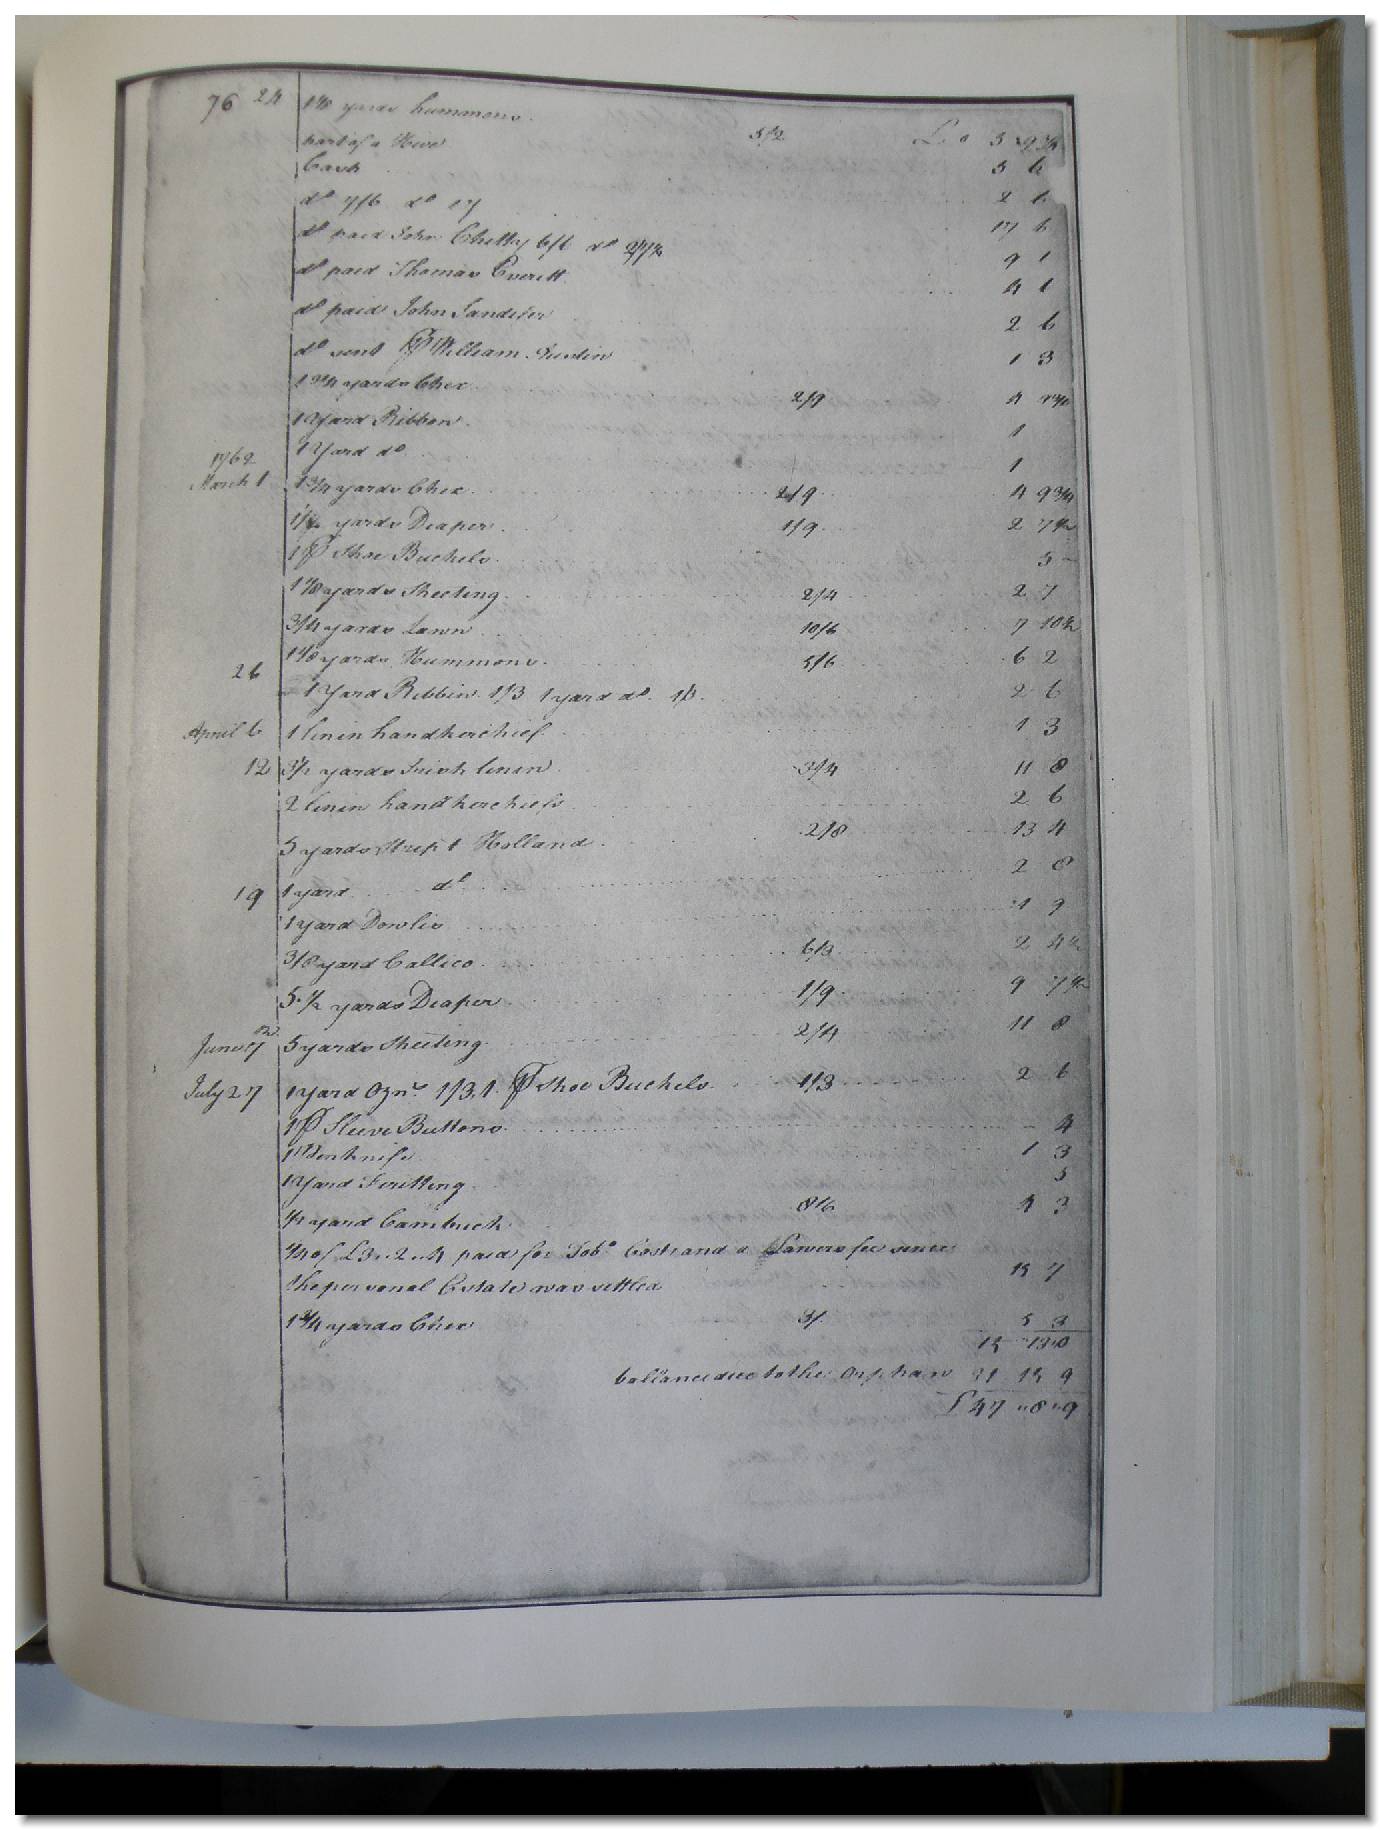 76 24 1 1/8 yards hummons. 5/2 £ 0 5 9 3/4
part of a Hive 5 6
Cash 2 6
do 7/6 do 17 6
do paid John Chetty 6/6 do 9 1
do paid Thomas Everett 4 1
do paid John Sandifer 2 6
do sent ⅌ William Austin 1 3
1 3/4 yards Chex 2/9 4 9 3/4
1 yard Ribbon 1
1 Yard do 1
1762
March 1 1 3/4 yards Chex 2/9 4 9 3/4
1 1/2 yards Diaper 1/9 2 7 1/2
1 P Shoe Buckels 5 -
1 1/8 yards Sheeting 2/4 2 7
3/4 yards Lawn 10/6 7 10 1/2
1 1/8 yards Hummons 5/6 6 2
26 1 Yard Ribbin 1/3 1 yard do. 1/3 2 6
April 6 1 linin handkerchief 1 3
12 3 1/2 yards Irish linin 3/4 11 8
2 linin handkerchiefs 2 6
5 yards Stript Holland 2/8 13 4
19 1 yard do 2 8
1 yard Dowlis 1 9
3/8 yard Callico 6/3 2 4 1/2
5 1/2 yards Diaper 1/9 9 7 1/2
June 5 yards Sheeting 2/4 11 8
July 27 1 Yard Ozns. 1/3, 1 P Shoe Buckels 1/3 2 6
1 P Sleeve Buttons - 4
1 Penknife 1 3
1 Yard Feritting 5
1/2 yard Cambrick 8/6 4 3
1/4 of £3. 2. 4 paid for Tobo Cost and a Lawers fee since
the personal Estate was settled 15 7
1 3/4 yards Chex 3/ 5 3
15 13 0
ballance due to the Orphan 31 15 9
£ 47 " 8 " 9